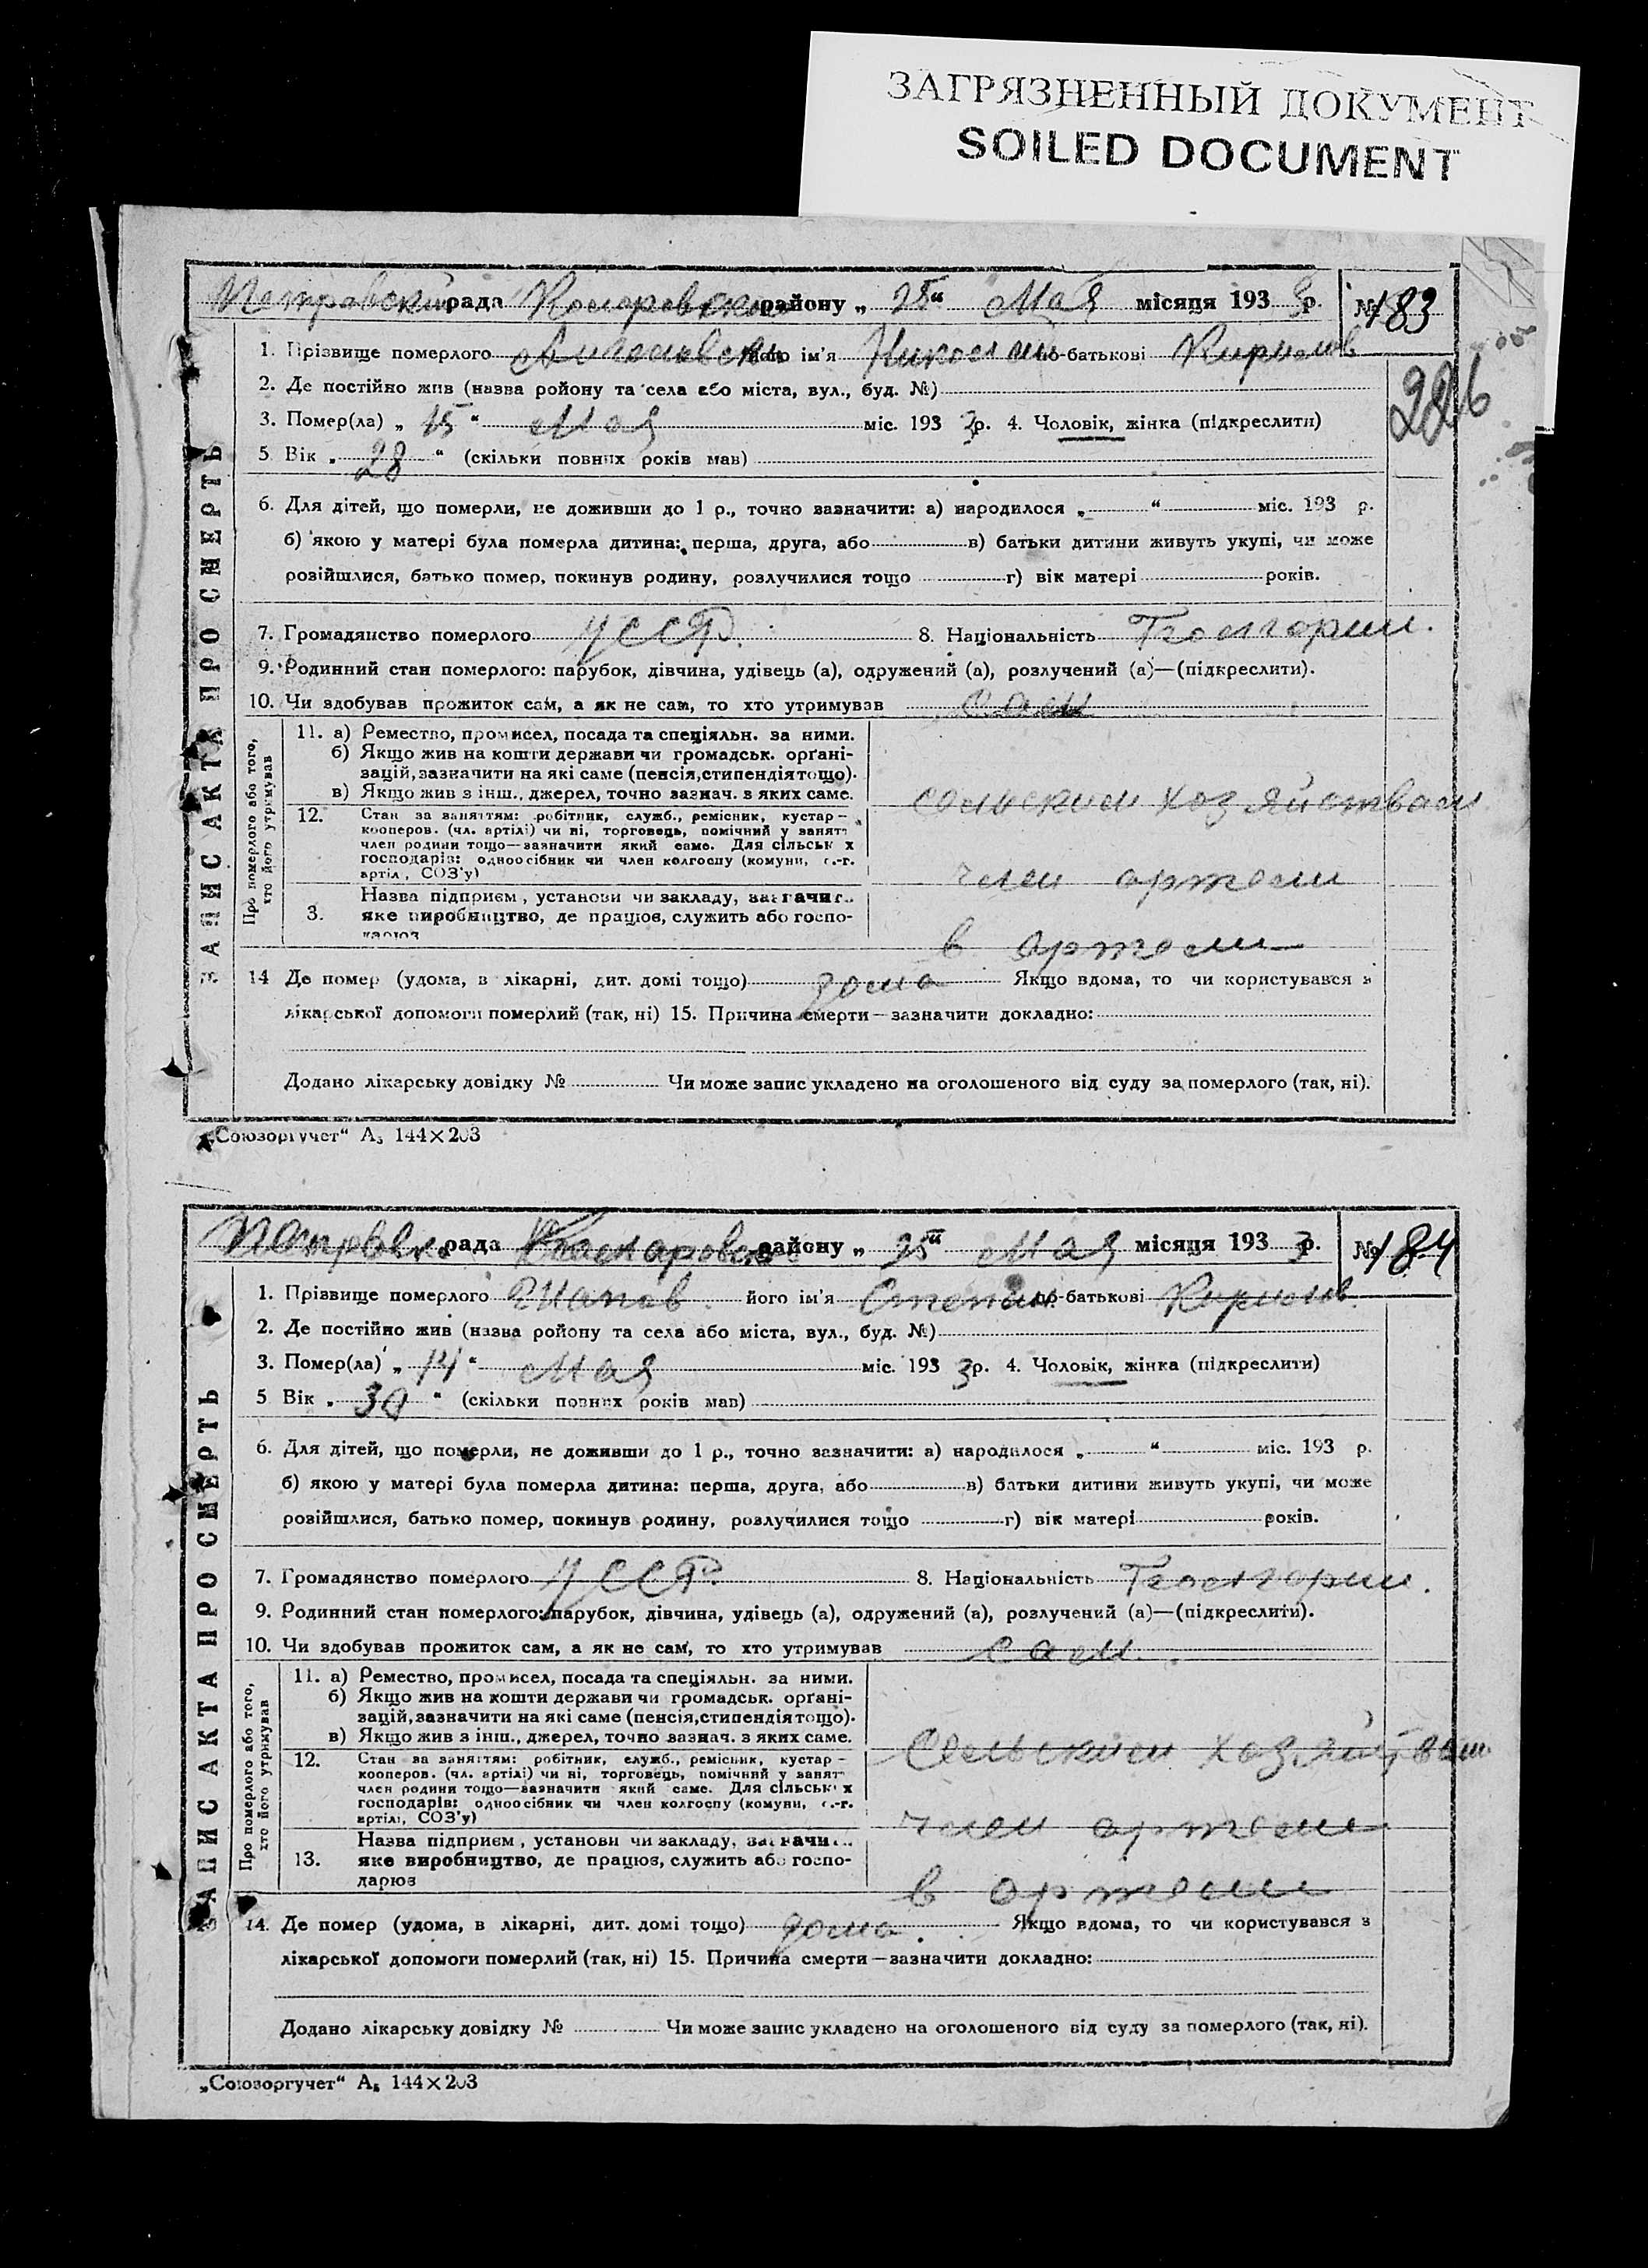 ЗАГРЯЗНЕННЫЙ ДОКУМЕНТ
SOILED DOCUMENT
рада району „25“ Мая місяця 1933 р. № 183
1. Прізвище померлого його ім'я Николай по-батькові Кирилов
226
2. Де постійно жив (назва ройону та села або міста, вул., буд. №)
3. Помер(ла) „15“ Мая міс. 1933 р. 4. Чоловік, жінка (підкреслити)
5 Вік „28“ (скільки повних років мав)
6. Для дітей, що померли, не доживши до 1 р., точно зазначити: а) народилося „ “ міс. 193 р.
б) якою у матері була померла дитина: перша, друга, або в) батьки дитини живуть укупі, чи може
розійшлися, батько помер, покинув родину, розлучилися тощо г) вік матері років.
7. Громадянство померлого УССР. 8. Національність
9. Родинний стан померлого: парубок, дівчина, удівець (а), одружений (а), розлучений (а)—(підкреслити).
10. Чи здобував прожиток сам, а як не сам, то хто утримував сам
ЗАПИС АКТА ПРО СМЕРТЬ
Про померлого або того, хто його утримував
11. а) Ремество, промисел, посада та спеціяльн. за ними.
б) Якщо жив на кошти держави чи громадськ. орґані-
зацій, зазначити на які саме (пенсія, стипендія тощо).
в) Якщо жив з інш., джерел, точно зазнач. з яких саме.
сельским хозяйством
12. Стан за заняттям: робітник, служб., ремісник, кустар —
кооперов. (чл. артілі) чи ні, торговець, помічний у занятт
член родини тощо—зазначити який саме. Для сільськ х
господарів: одноосібник чи член колгоспу (комуни, с.-г.
артіл , СОЗ'у)
член артели
Назва підприєм , установи чи закладу, зазначит..
3. яке виробництво, де працює, служить або госпо-
дарює
в артели
14 Де помер (удома, в лікарні, дит. домі тощо) дома Якщо вдома, то чи користувався з
лікарської допомоги померлий (так, ні) 15. Причина смерти—зазначити докладно:
Додано лікарську довідку № Чи може запис укладено на оголошеного від суду за померлого (так, ні).
„Союзоргучет“ А₅ 144×203
рада району „25“ Мая місяця 1933 р. № 184
1. Прізвище померлого його ім'я Степан по-батькові Кирилов
2. Де постійно жив (назва ройону та села або міста, вул., буд. №)
3. Помер(ла) „14“ Мая міс. 1933 р. 4. Чоловік, жінка (підкреслити)
5 Вік „30“ (скільки повних років мав)
6. Для дітей, що померли, не доживши до 1 р., точно зазначити: а) народилося „ “ міс. 193 р.
б) якою у матері була померла дитина: перша, друга, або в) батьки дитини живуть укупі, чи може
розійшлися, батько помер, покинув родину, розлучилися тощо г) вік матері років.
7. Громадянство померлого УССР. 8. Національність
9. Родинний стан померлого: парубок, дівчина, удівець (а), одружений (а), розлучений (а)—(підкреслити).
10. Чи здобував прожиток сам, а як не сам, то хто утримував сам.
ЗАПИС АКТА ПРО СМЕРТЬ
Про померлого або того, хто його утримував
11. а) Ремество, промисел, посада та спеціяльн. за ними.
б) Якщо жив на кошти держави чи громадськ. орґані-
зацій, зазначити на які саме (пенсія, стипендія тощо).
в) Якщо жив з інш., джерел, точно зазнач. з яких саме.
Сельским хозяйством
12. Стан за заняттям: робітник, служб., ремісник, кустар —
кооперов. (чл. артілі) чи ні, торговець, помічний у занят
член родини тощо—зазначити який саме. Для сільськ х
господарів: одноосібник чи член колгоспу (комуни, с.-г.
артілі, СОЗ'у)
член артели
Назва підприєм , установи чи закладу, зазначи..
13. яке виробництво, де працює, служить або госпо-
дарює
в артели
14. Де помер (удома, в лікарні, дит. домі тощо) дома. Якщо вдома, то чи користувався з
лікарської допомоги померлий (так, ні) 15. Причина смерти—зазначити докладно:
Додано лікарську довідку № Чи може запис укладено на оголошеного від суду за померлого (так, ні).
„Союзоргучет“ А₅ 144×203